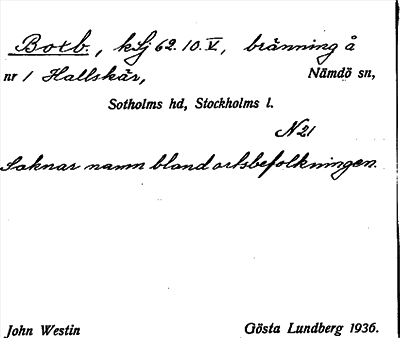 Botb., kLj 62.10.V, bränning å
nr 1 Hallskär, Nämdö sn,
Sotholms hd, Stockholms l.
N21
Saknar namn bland ortsbefolkningen.
John Westin Gösta Lundberg 1936.